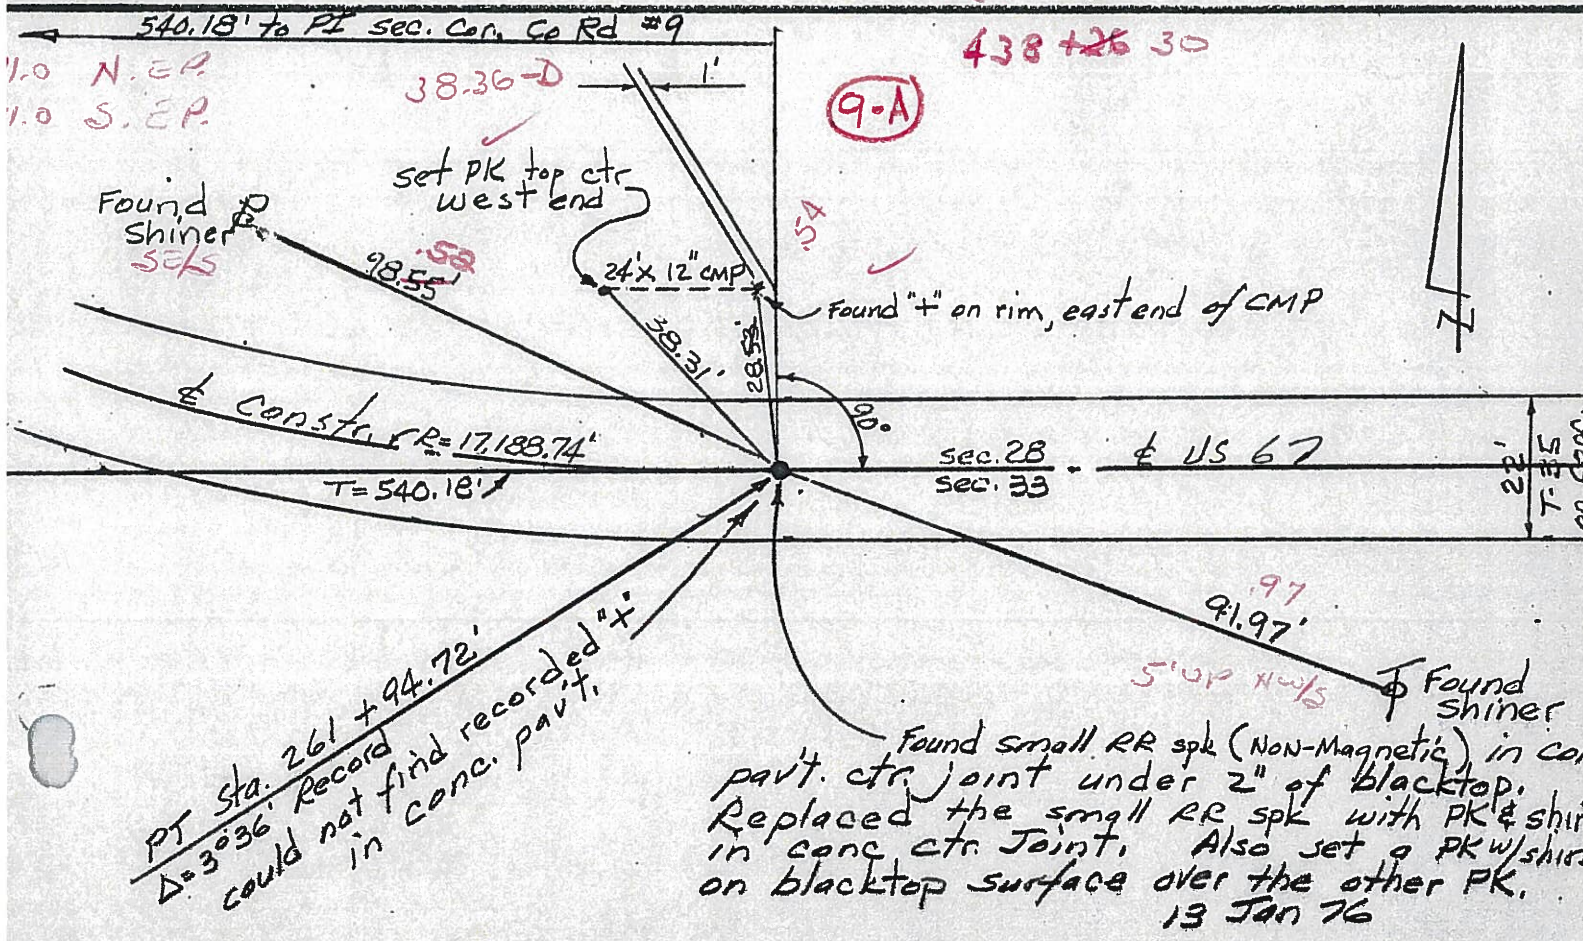 540.18' to PI sec. Cor. Co Rd #9
438 +26 30
1.0 N. E.P.
1.0 S. E.P.
38.36-D
1'
9-A
set PK top ctr
west end
Found
Shiner
SE/S
.54
.52
98.55'
24'x 12" CMP
Found "+" on rim, east end of CMP
38.31'
28.53'
90°
¢ Constr. R=17,188.74'
T=540.18'
sec. 28
sec. 33
¢ US 67
22'
T-35
.97
91.97'
5' UP NW/S
Found
Shiner
PT Sta. 261 + 94.72'
Δ=3°36' Record
could not find recorded "x"
in conc. pav't.
Found small RR spk (Non-Magnetic) in
pav't. ctr. joint under 2" of blacktop.
Replaced the small RR spk with PK &
in conc ctr Joint. Also set a PK w/
on blacktop surface over the other PK.
13 Jan 76